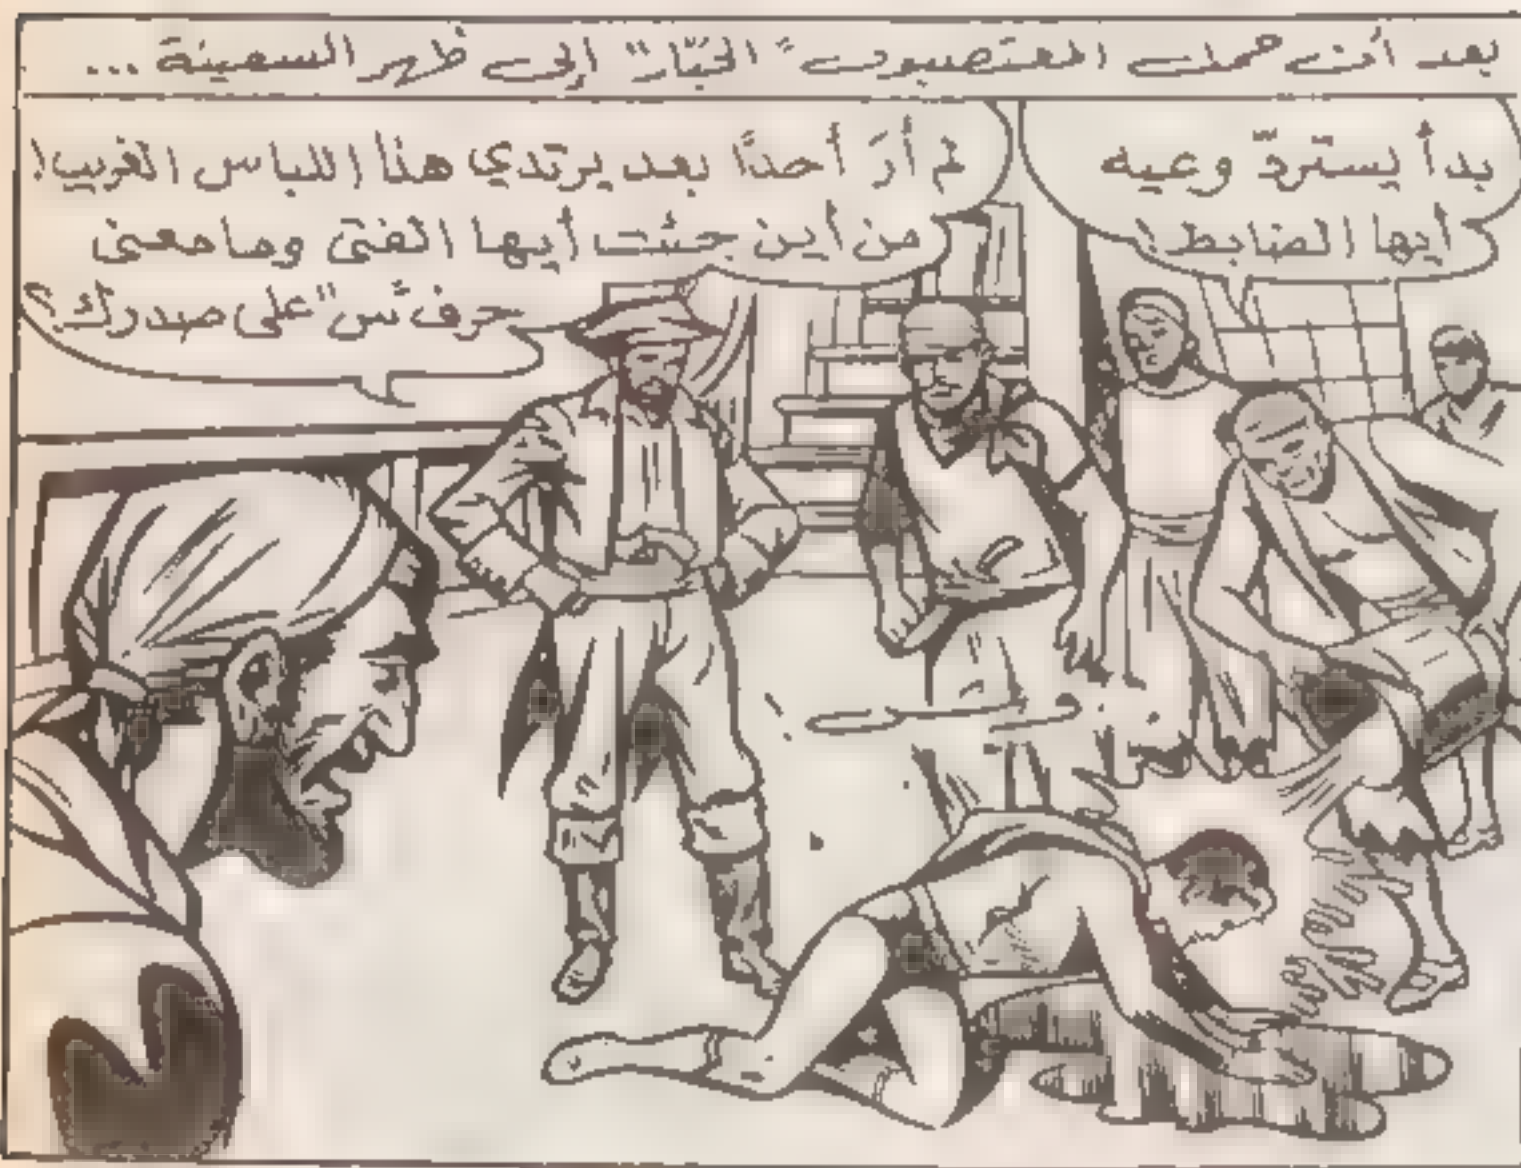 بعد أن حمل المغتصبون "الجبّار" إلى ظهر السفينة ...
بدأ يستردّ وعيه
أيها الضابط!
لم أرَ أحدًا بعد يرتدي هذا اللباس الغريب!
من أين جئت أيها الفتى وما معنى
حرف "س" على صدرك؟